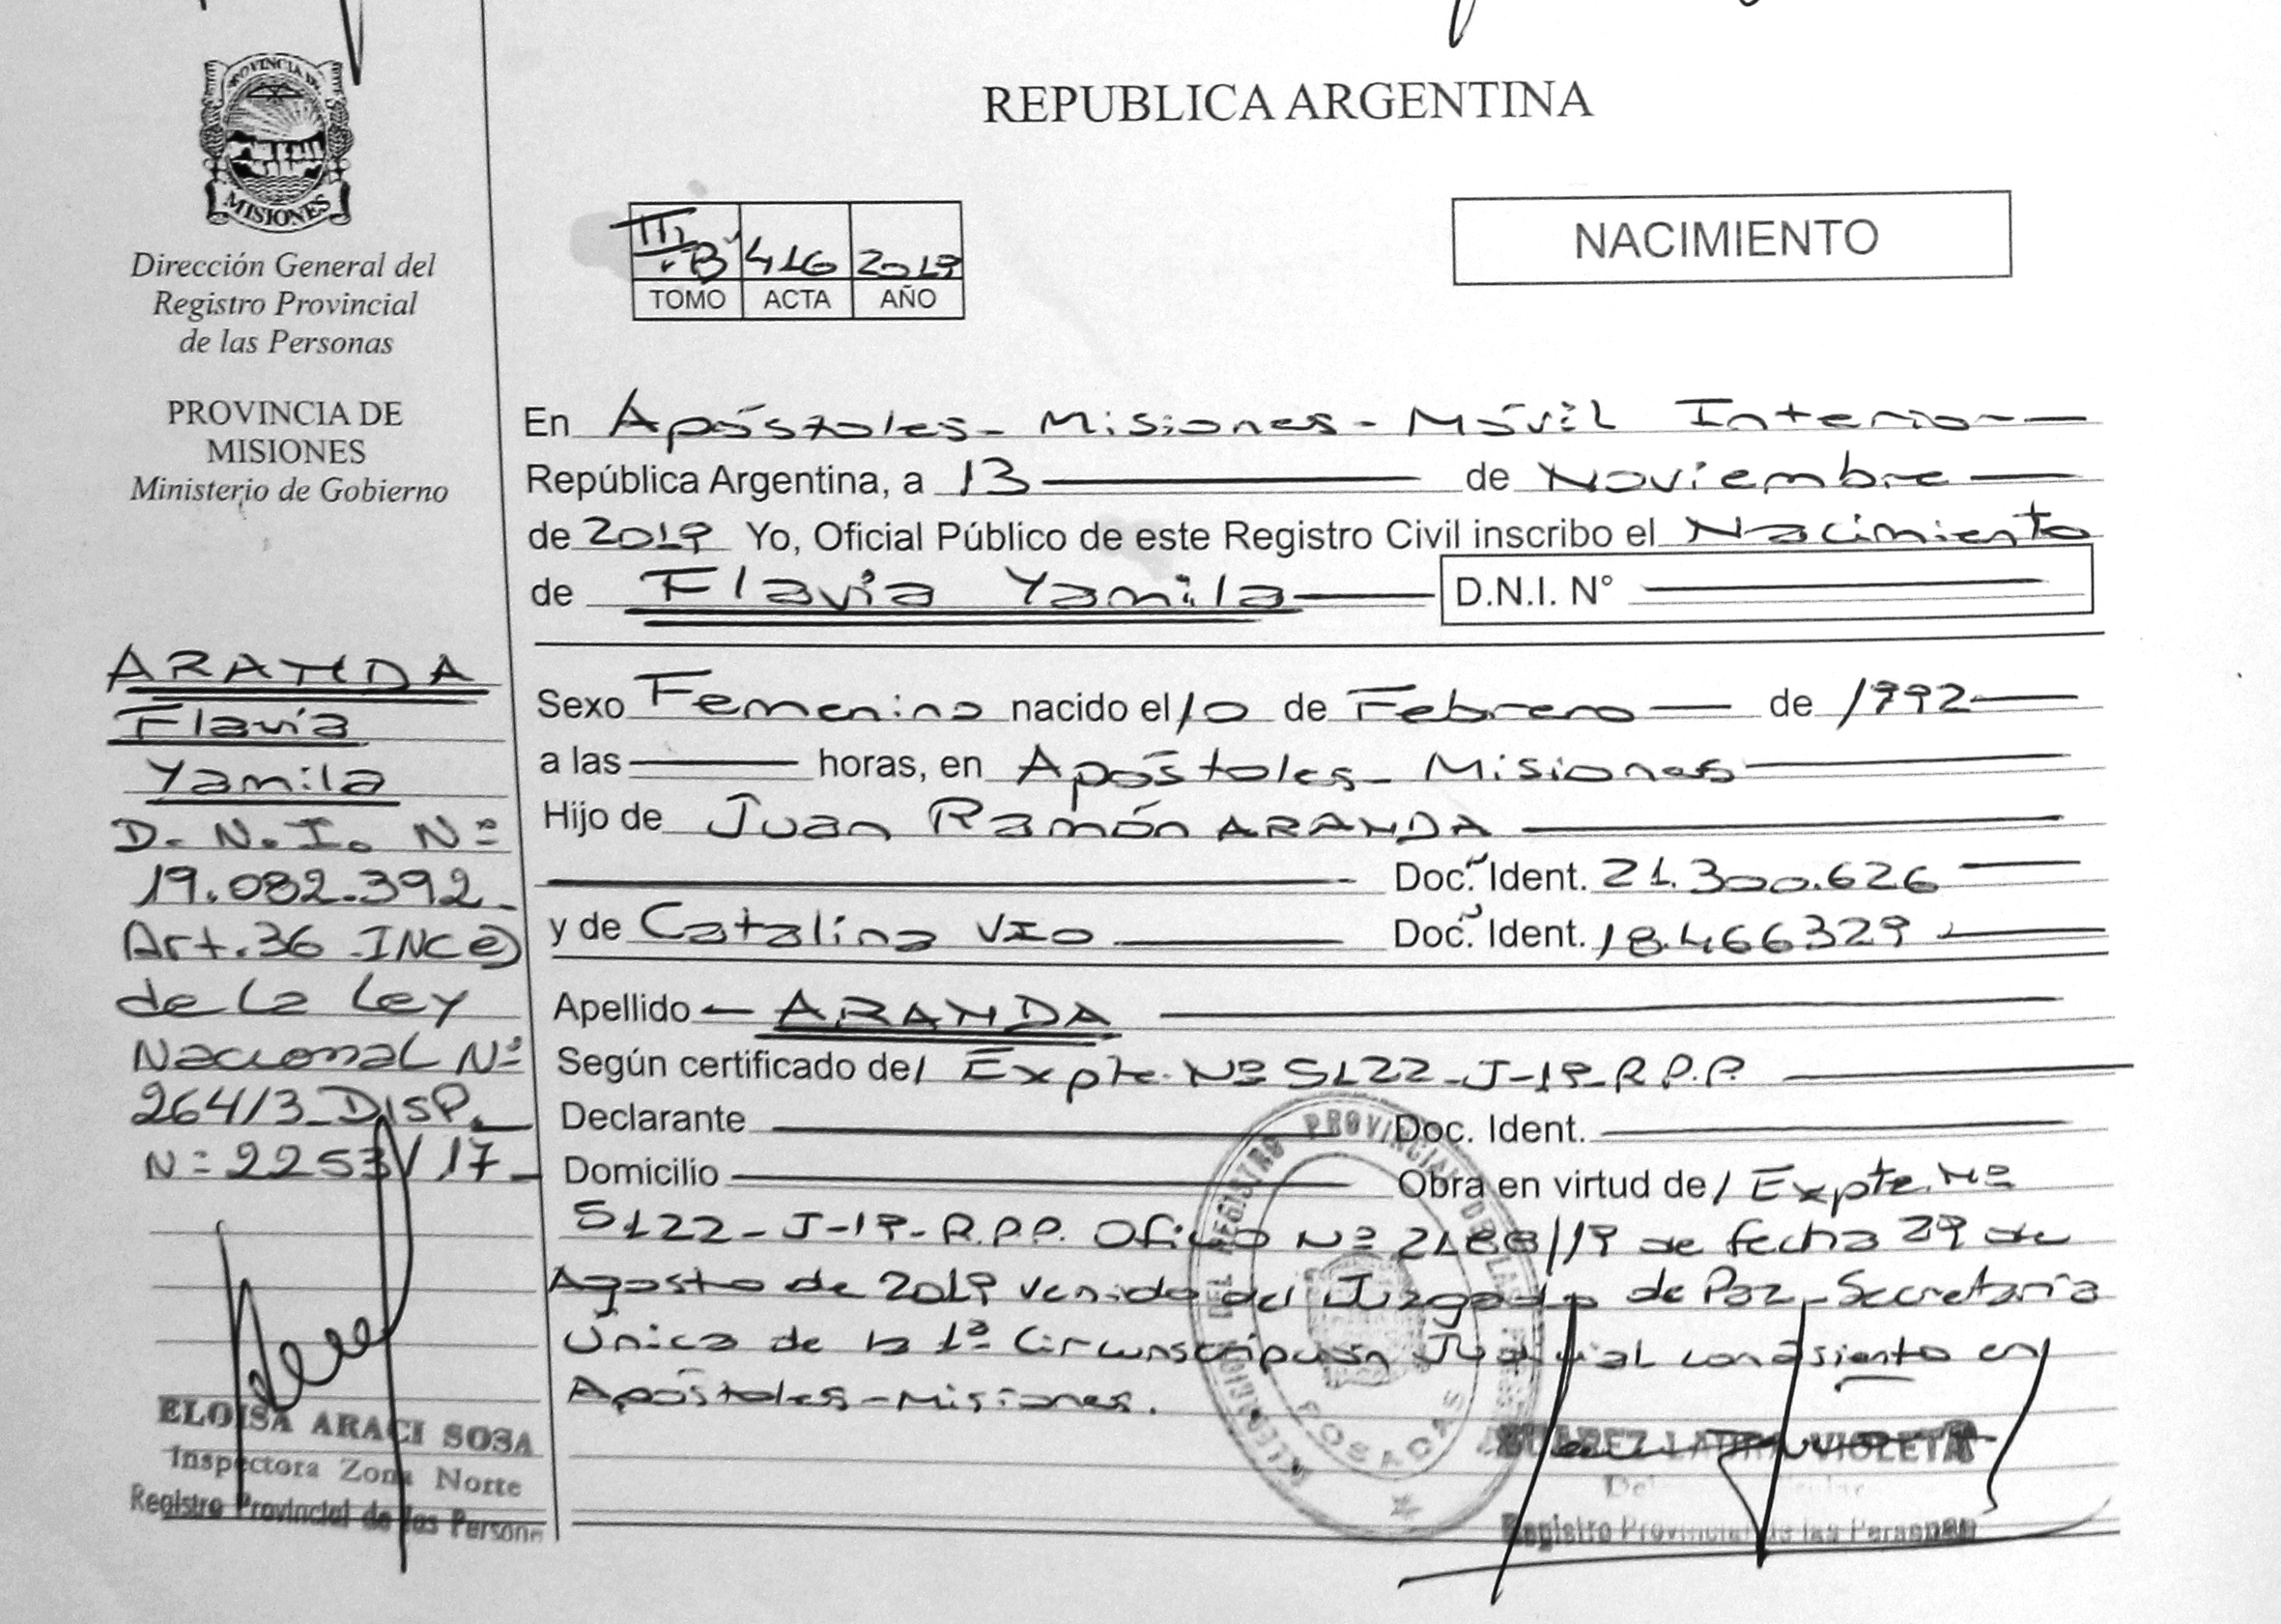 PROVINCIA DE
MISIONES
Dirección General del
Registro Provincial
de las Personas
PROVINCIA DE
MISIONES
Ministerio de Gobierno
ARANDA
Flavia
Yamila
D.N.I. Nº
19.082.392
Art.36 INC e)
de La Ley
Nacional Nº
26413-DISP.
Nº 2253/17-
ELOISA ARACI SOSA
Inspectora Zona Norte
Registro Provincial de las Persona
REPUBLICA ARGENTINA
NACIMIENTO
III B 416 2019
TOMO ACTA AÑO
En Apóstoles - Misiones - Móvil Interior
República Argentina, a 13 de Noviembre
de 2019 Yo, Oficial Público de este Registro Civil inscribo el Nacimiento
de Flavia Yamila D.N.I. N°
Sexo Femenino nacido el 10 de Febrero de 1992
a las horas, en Apóstoles - Misiones
Hijo de Juan Ramón ARANDA
Doc. Ident. 21.300.626
y de Catalina VIO Doc. Ident. 18.466329
Apellido ARANDA
Según certificado del Expte. Nº 5122-J-19-R.P.P.
Declarante Doc. Ident.
Domicilio Obra en virtud del Expte. Nº
5122-J-19-R.P.P. Oficio Nº /19 de fecha 29 de
Agosto de 2019 venido del Juzgado de Paz - Secretaría
Única de la 1ª Circunscripción Judicial con asiento en
Apóstoles - Misiones.
DEL REGISTRO PROVINCIAL DE LAS PERSONAS
POSADAS
SUAREZ LAURA VIOLETA
Registro Provincial de las Personas